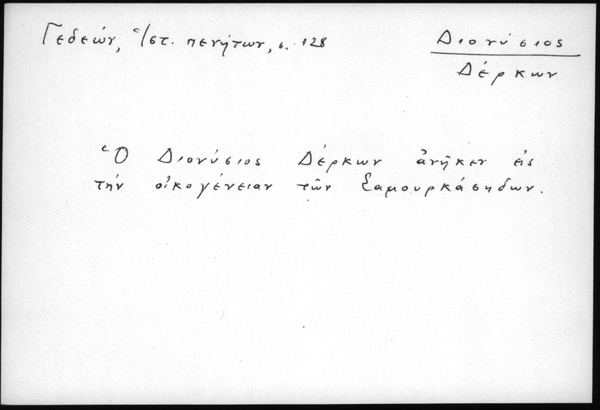 Γεδεών, Ἱστ. πενήτων, σ. 128
Διονύσιος
Δέρκων
Ὁ Διονύσιος Δέρκων ἀνῆκεν εἰς
τὴν οἰκογένειαν τῶν Σαμουρκάσηδων.